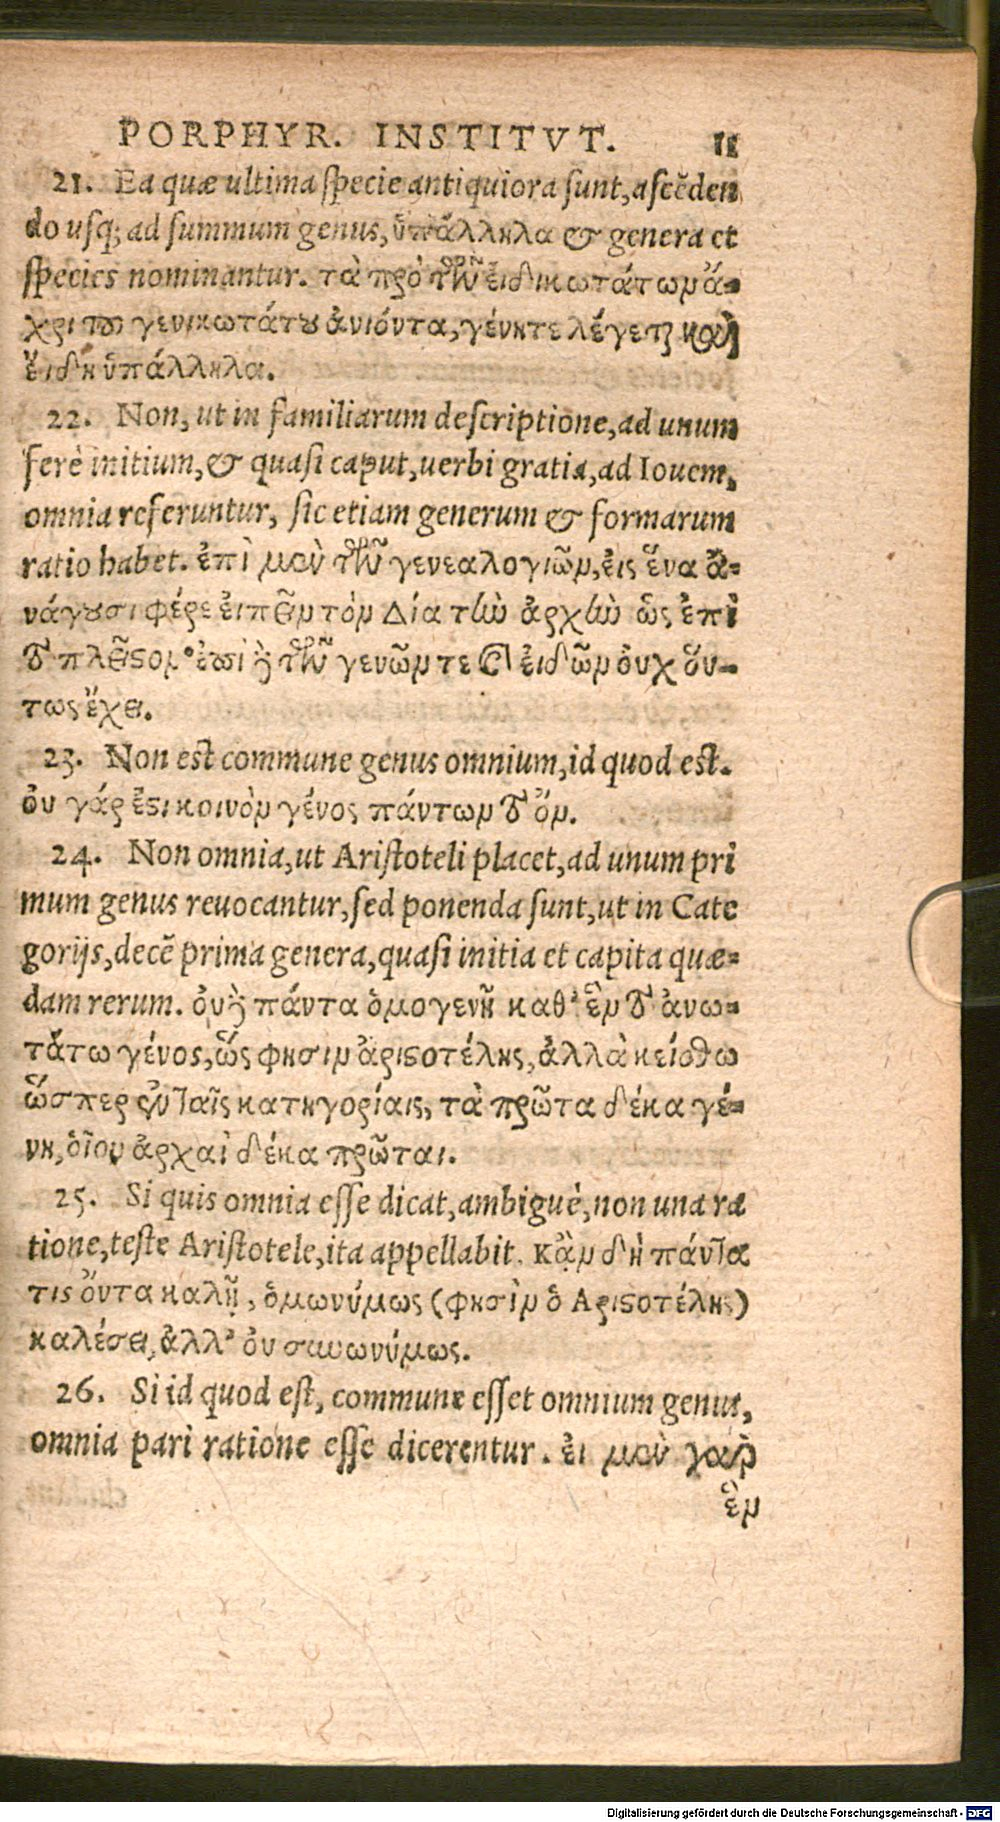 PORPHYR. INSTITVT. 11
21. Ea quæ ultima specie antiquiora sunt, ascēden
do usq; ad summum genus, ὑπάλληλα & genera et
species nominantur. τὰ πρὸ τῶν εἰδικωτάτων ἄ-
χρι τοῦ γενικωτάτου ἀνιόντα, γένη τε λέγεται καὶ
εἴδη ὑπάλληλα.
22. Non, ut in familiarum descriptione, ad unum
ferè initium, & quasi caput, uerbi gratia, ad Iouem,
omnia referuntur, sic etiam generum & formarum
ratio habet. ἐπὶ μὲν τῶν γενεαλογιῶν, εἰς ἕνα ἀ-
νάγουσι φέρε εἰπεῖν τὸν Δία τὴν ἀρχὴν ὡς ἐπὶ
τὸ πλεῖστον· ἐπὶ δὲ τῶν γενῶν τε καὶ εἰδῶν οὐχ οὕ-
τως ἔχει.
23. Non est commune genus omnium, id quod est.
οὐ γάρ ἐστι κοινὸν γένος πάντων τὸ ὄν.
24. Non omnia, ut Aristoteli placet, ad unum pri
mum genus reuocantur, sed ponenda sunt, ut in Cate
gorijs, decē prima genera, quasi initia et capita quæ-
dam rerum. οὐδὲ πάντα ὁμογενῆ καθ' ἓν τὸ ἀνω-
τάτω γένος, ὥς φησιν ἀριστοτέλης, ἀλλὰ κείσθω
ὥσπερ ἐν ταῖς κατηγορίαις, τὰ πρῶτα δέκα γέ-
νη, οἷον ἀρχαὶ δέκα πρῶται.
25. Si quis omnia esse dicat, ambiguè, non una ra
tione, teste Aristotele, ita appellabit. κἂν δὴ πάντα
τις ὄντα καλῇ, ὁμωνύμως (φησὶν ὁ Αριστοτέλης)
καλέσει, ἀλλ' οὐ συνωνύμως.
26. Si id quod est, commune esset omnium genus,
omnia pari ratione esse dicerentur. εἰ μὲν γὰρ
ἓν
Digitalisierung gefördert durch die Deutsche Forschungsgemeinschaft - DFG